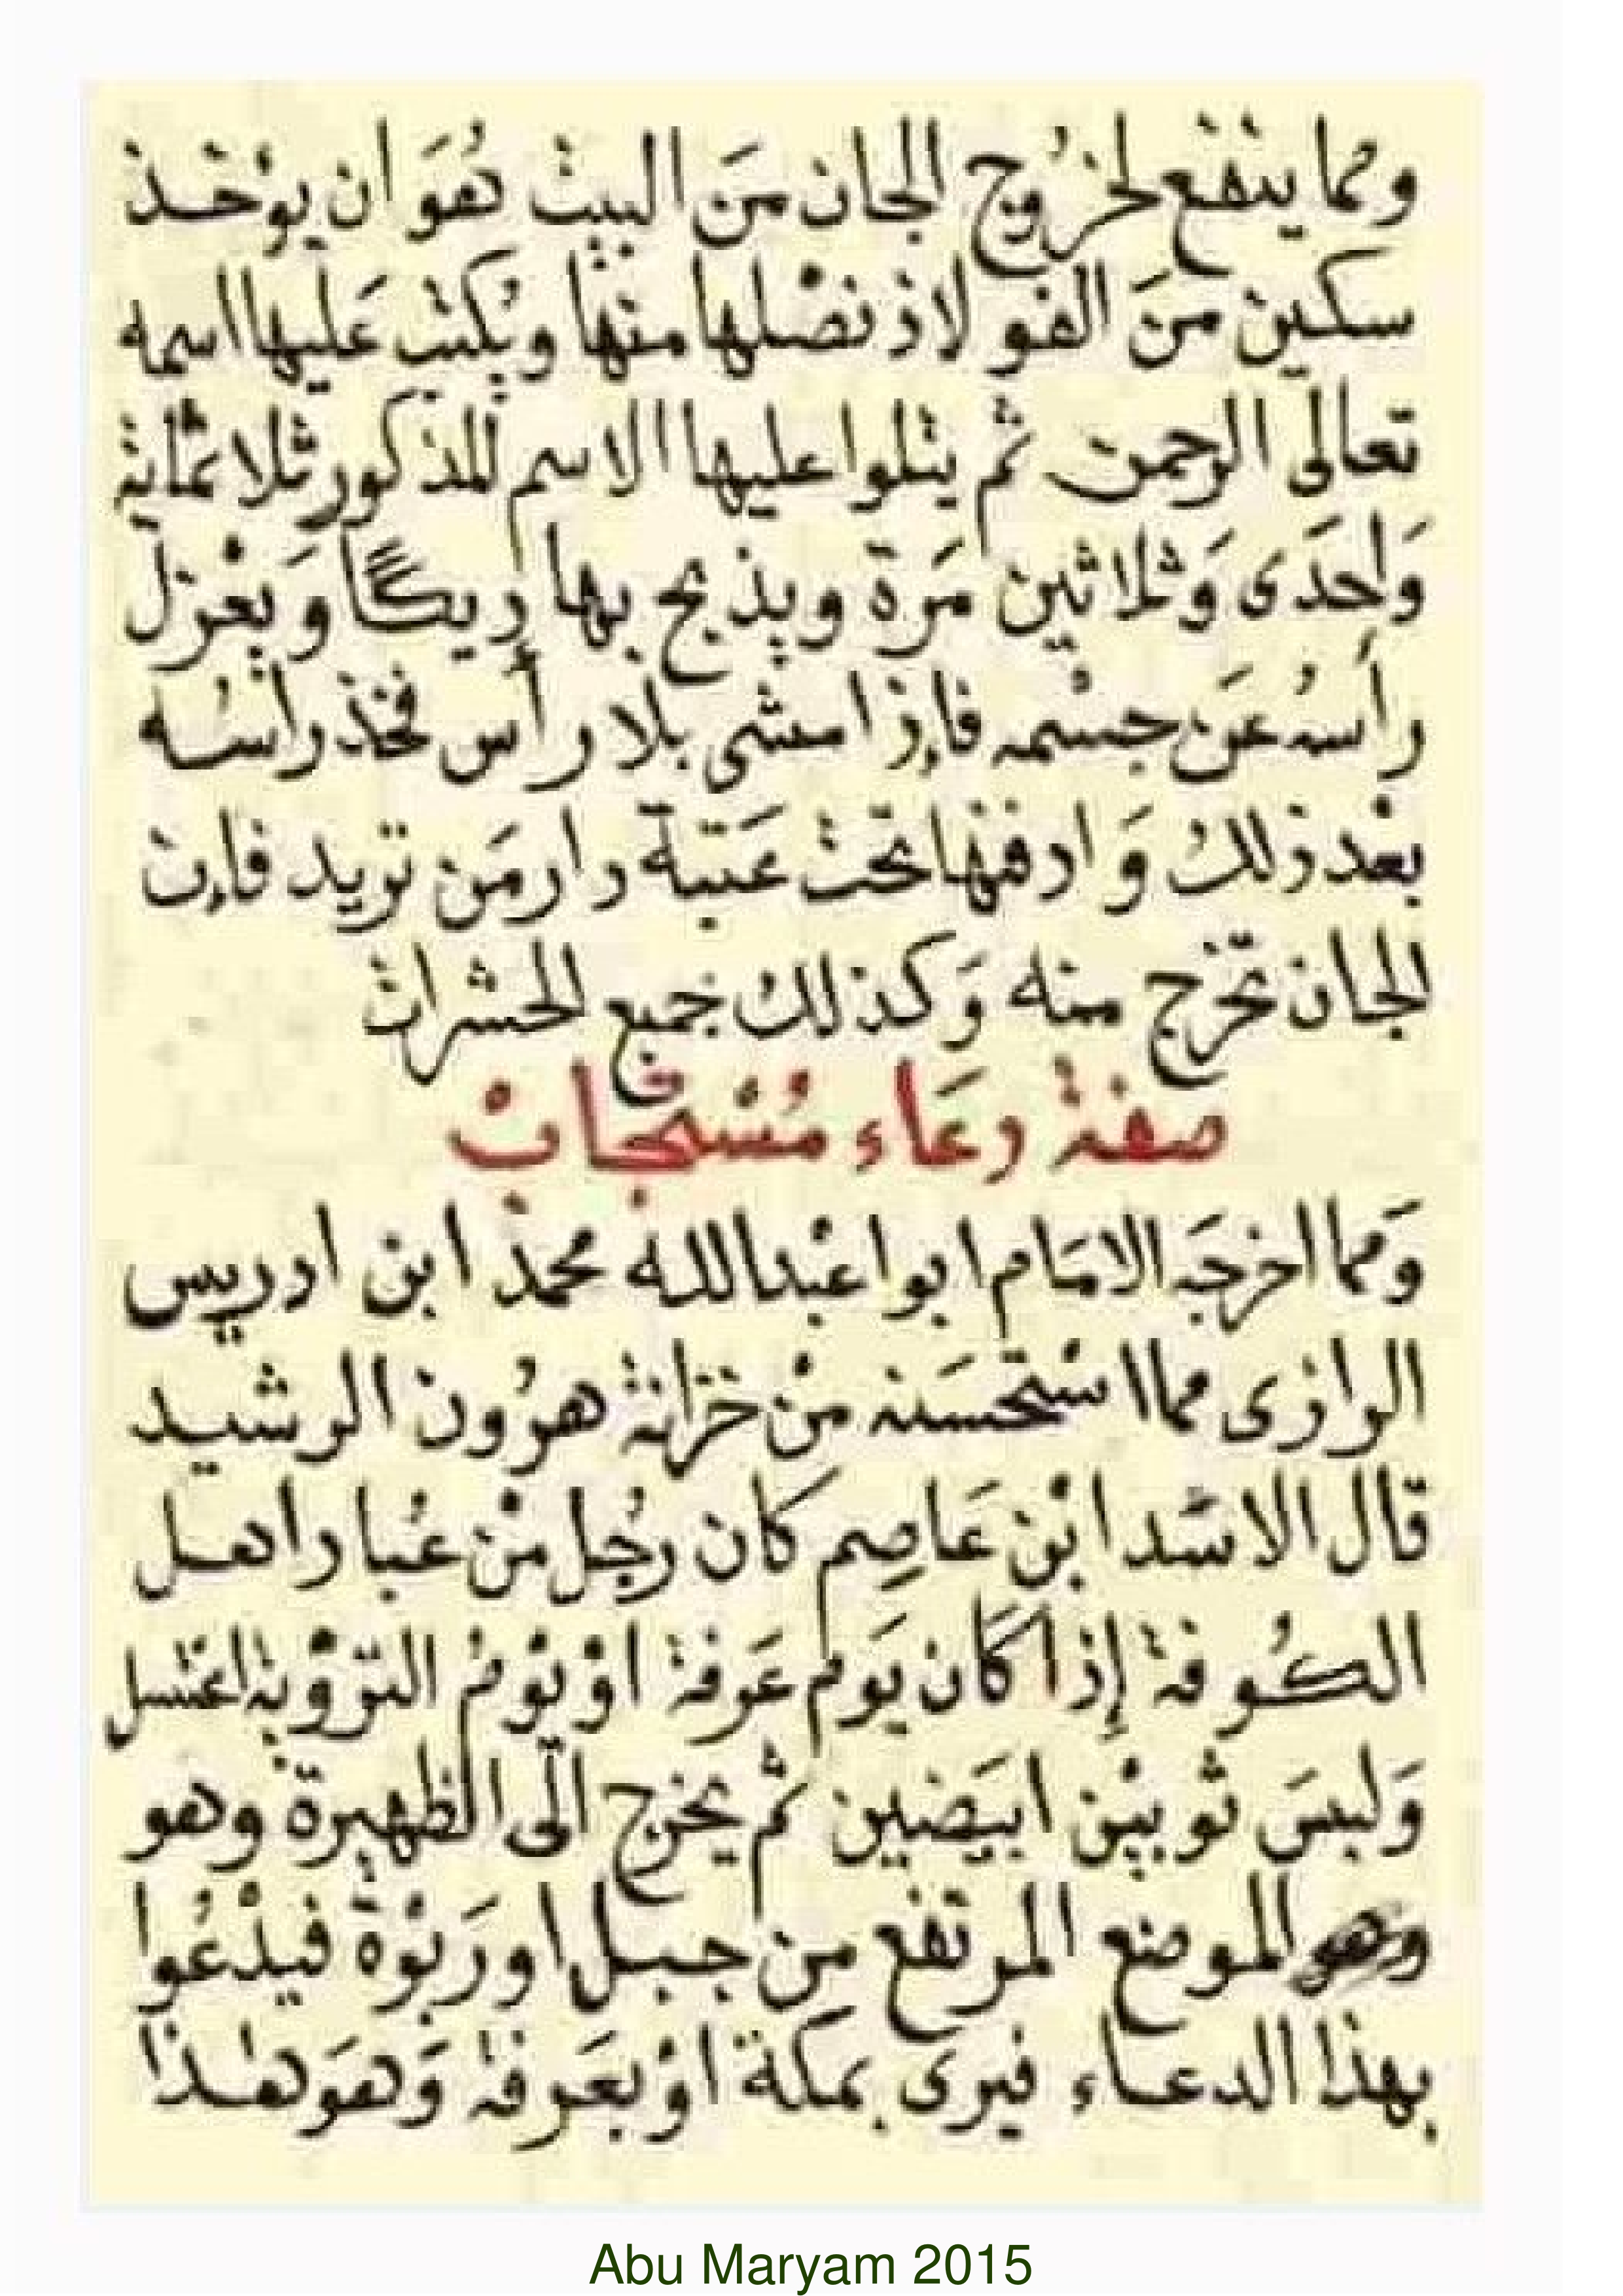 ومما ينفع لخروج الجان من البيت هو ان يوخذ
سكين من الفولاذ نصلها منها ويكتب عليها اسمه
تعالى الرحمن ثم يتلوا عليها الاسم المذكور ثلاثماية
واحدى وثلاثين مرة ويذبح بها ديكًا ويعزل
رأسه عن جسمه فإذا مشى بلا رأس فخذ راسه
بعد ذلك وادفنها تحت عتبة دار من تريد فإن
الجان تخرج منه وكذلك جميع الحشرات
صفة دعاء مستجاب
ومما اخرجه الامام ابوا عبدالله محمد ابن ادريس
الرازى مما استحسنه من خزانة هرون الرشيد
قال الاسد ابن عاصم كان رجل من عباد اهل
الكوفة إذا كان يوم عرفة او يوم التروية اغتسل
ولبس ثوبين ابيضين ثم يخرج الى الظهيرة وهو
وهو الموضع المرتفع من جبل او ربوة فيدعوا
بهذا الدعاء فيرى بمكة او بعرفة وهو هذا
Abu Maryam 2015